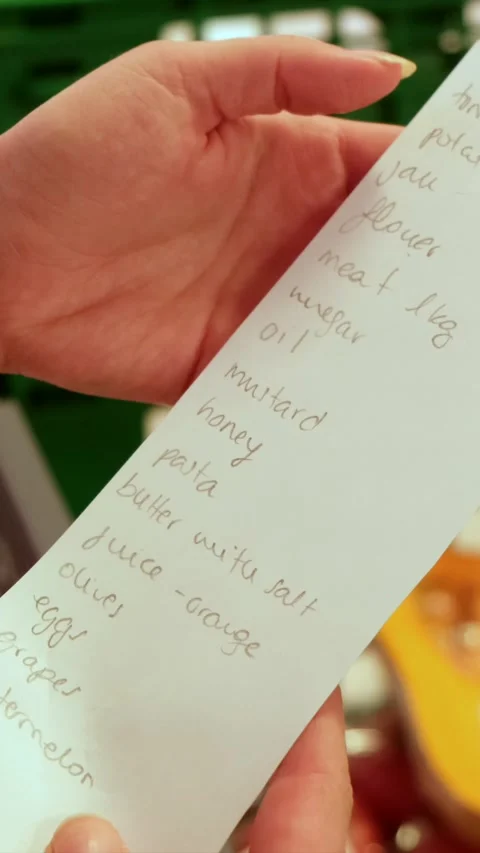 tom
potat
jam
flower
meat 1kg
vinegar
oil
mustard
honey
pasta
butter with salt
juice - orange
olives
eggs
grapes
termelon